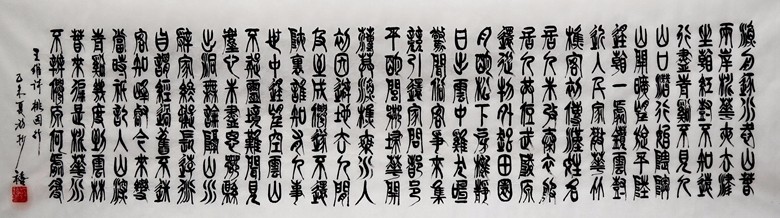 漁舟逐水愛山春
兩岸桃花夾古津
坐看紅樹不知遠
行盡青溪不見人
山口潛行始隈隩
山開曠望旋平陸
遙看一處攢雲樹
近入千家散花竹
樵客初傳漢姓名
居人未改秦衣服
居人共住武陵源
還從物外起田園
月明松下房櫳靜
日出雲中雞犬喧
驚聞俗客爭來集
競引還家問都邑
平明閭巷掃花開
薄暮漁樵乘水入
初因避地去人間
及至成仙遂不還
峽裏誰知有人事
世中遙望空雲山
不疑靈境難聞見
塵心未盡思鄉縣
出洞無論隔山水
辭家終擬長游衍
自謂經過舊不迷
安知峰壑今來變
當時只記入山深
青溪幾度到雲林
春來遍是桃花水
不辨仙源何處尋
王維詩桃園行
乙未夏